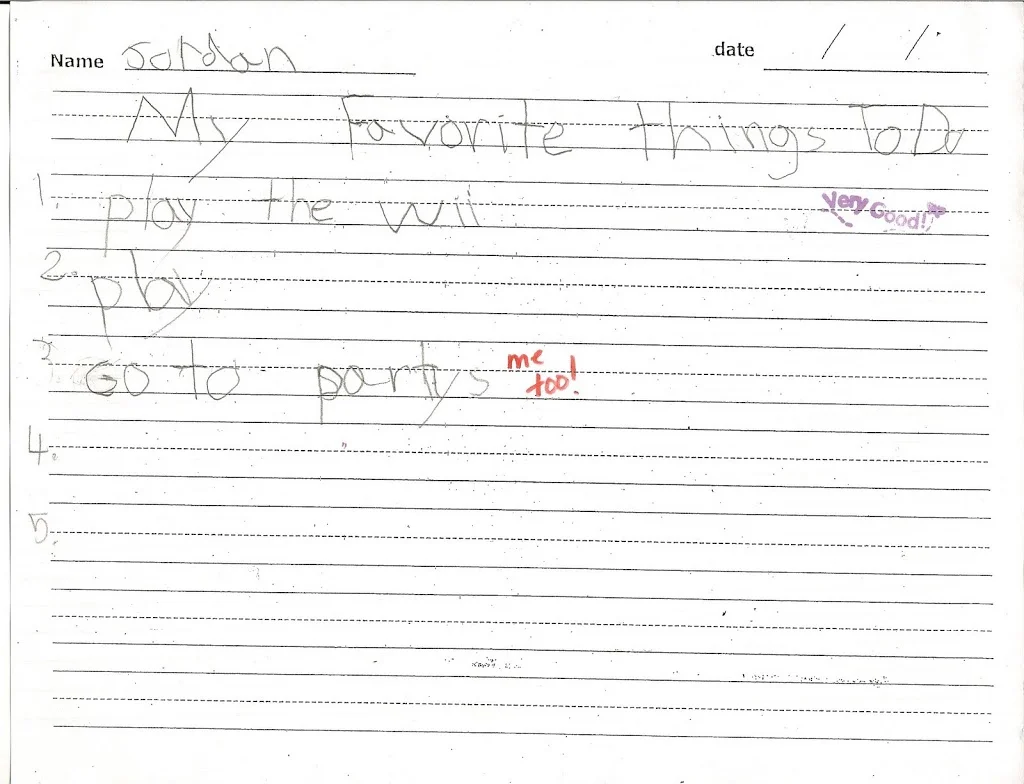 Name Jordan date / /
My Favorite things To Do
1. play the wii
Very Good!
2. play
3. Go to partys me too!
4.
5.